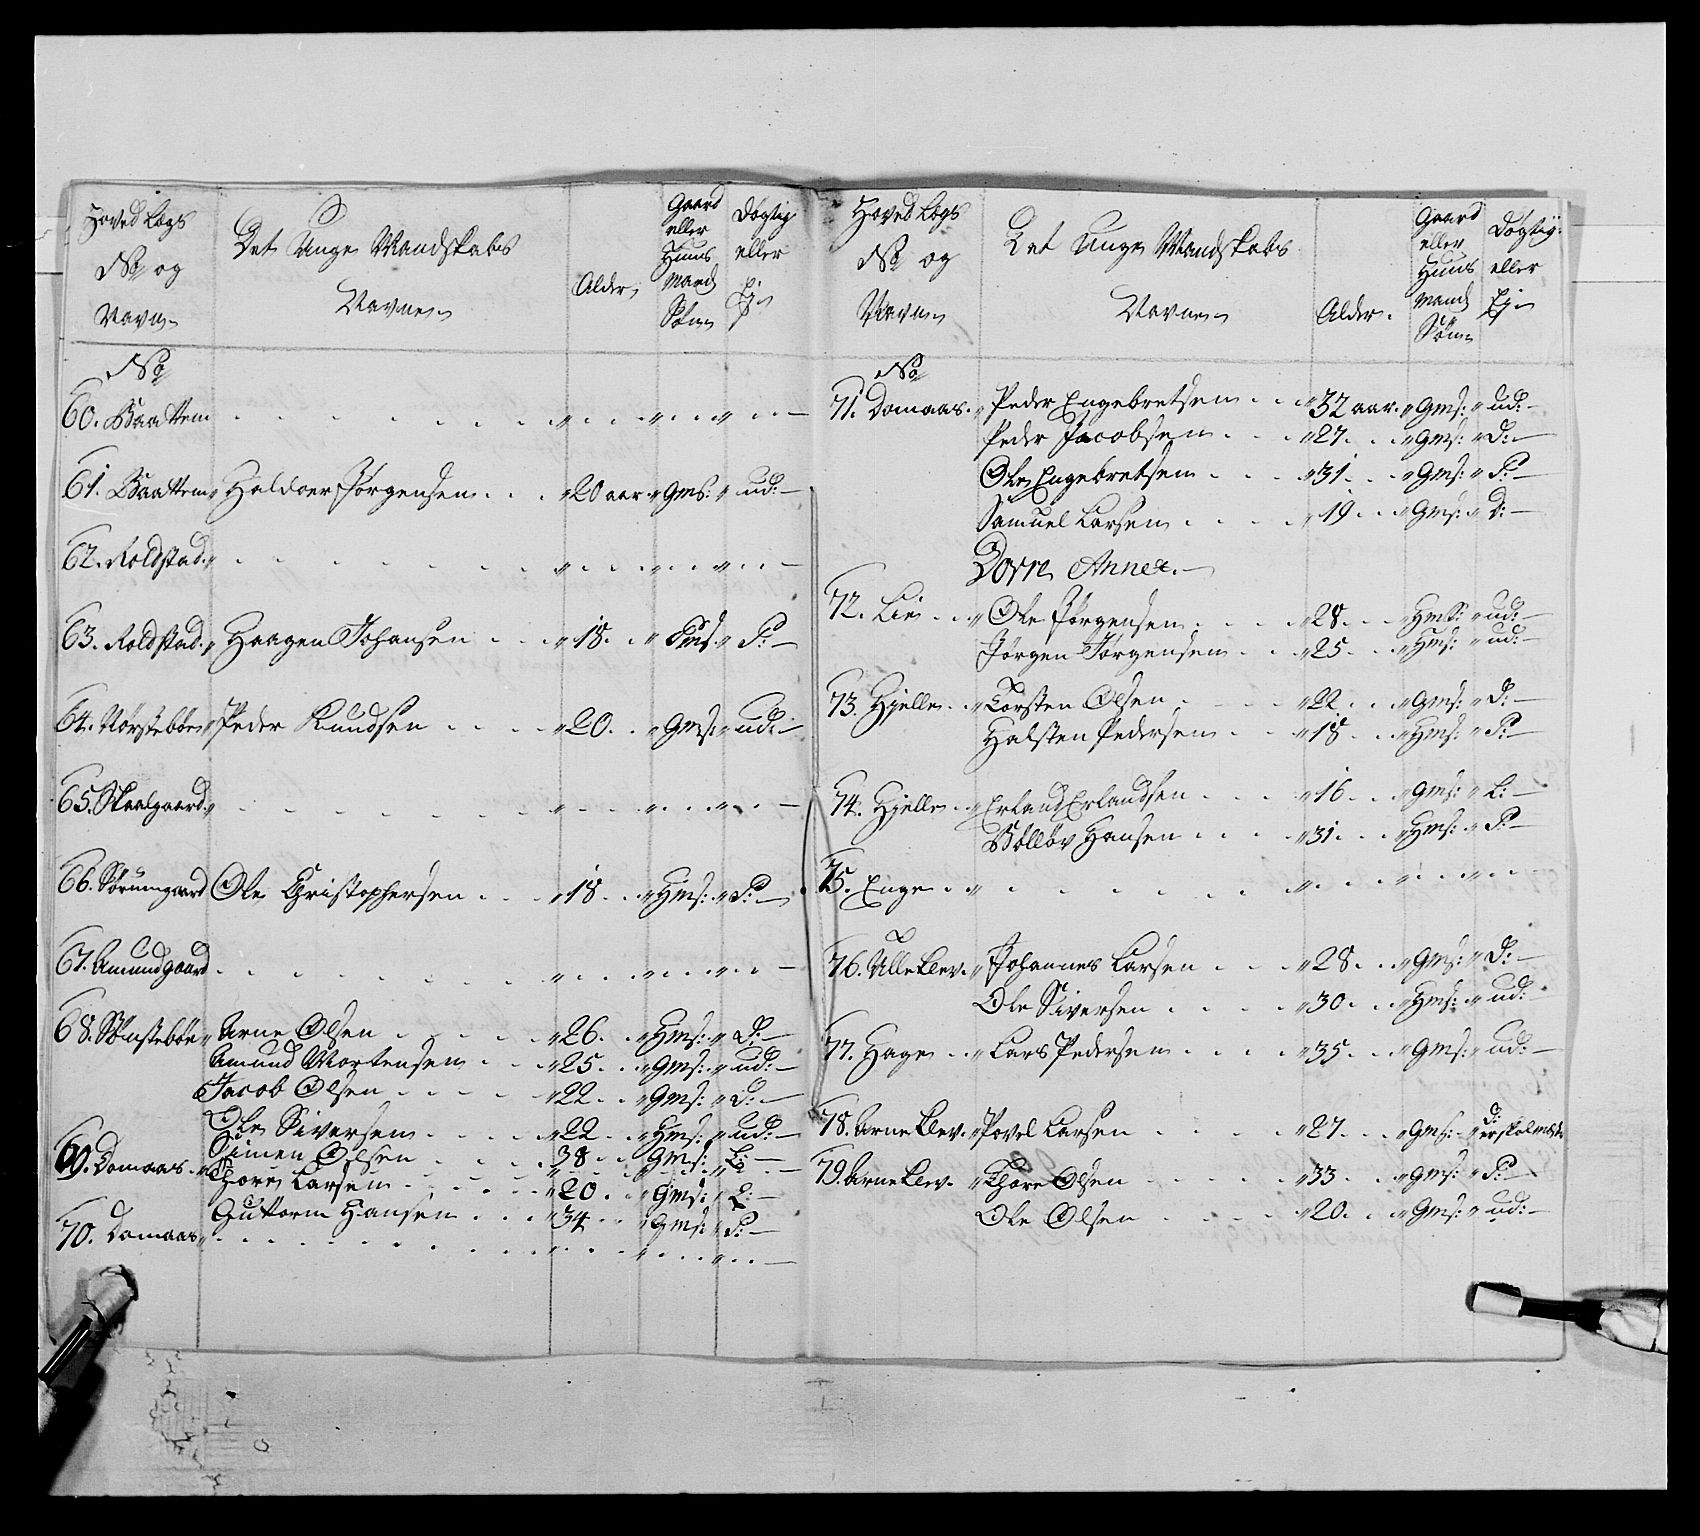 Hoved Legs
No og
Navn
Det Unge Mandskabs
Navne
Alder
Gaard
eller
Huus
Mands
Søn
Dögtig
eller
Ej
No
60. Baattem
61. Baattem " Haldoer Jörgensen " 20 aar " Gms: " ud: —
62. Roldstad.
63. Roldstad. " Haagen Johansen " 18 " " P: —
64. Nörsteböe " Peder Knudsen " 20 " Gms: " ud: —
65. Skaalgaard.
66. Sörumgaard Ole Christophersen " 18 " Hms: " P: —
67. Amundgaard
68. " Arne Olsen " 26 " Hms: " D: —
Amund Mortensen " 25 " Gms: " ud: —
Jacob Olsen " 22 " Gms: " D: —
Ole Siversen " 22 " Hms: " ud: —
Simen Olsen 38 Gms: L: —
69. Domaas " Thore Larsen " 20 " Gms: " L: —
Guttorm Hansen " 34 " Gms: " P: —
70. Domaas "
Hoved Legs
No og
Navn
Det Unge Mandskabs
Navne
Alder.
Gaard
eller
Huus
Mands
Søn
Dögtig
eller
Ej
No
71. Domaas. " Peder Engebretsen " 32 aar. " Gms: " ud: —
Peder Jacobsen " 27. " Gms: " D: —
Ole Engebretsen " 31 " Gms: " P: —
Samuel Larsen " 19 " Gms: " D: —
Dovre Annex. —
72. Lie " Ole Jörgensen " 28 " Hms: " ud: —
Jörgen Jörgensen " 25 " Hms: " ud: —
73. Hjelle " Torsten Olsen " 22 " Gms: " D: —
Halsten Pedersen " 18 " Hms: " P: —
74. Hjelle " Erland Erlandsen " 16 " Gms: " L: —
Hansen " 31 " Hms: " P: —
75. Enge "
76. Ulleklev. " Johannes Larsen " 28 " Gms: " D: —
Ole Siversen " 30 " Hms: " ud: —
77. Hage " Lars Pedersen " 35 " Gms: " ud: —
78. Arneklev. " Povel Larsen " 27 " Gms: " D:
79. Arneklev. " Thore Olsen " 33 " Gms: " P: —
Ole Olsen " 20 " Gms: " ud: —